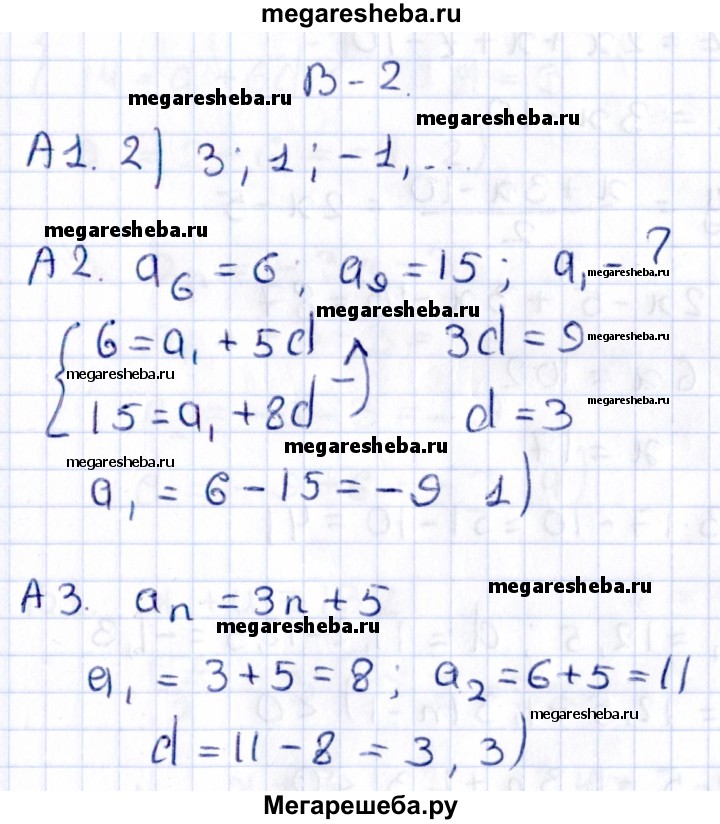 megaresheba.ru
В-2.
megaresheba.ru
megaresheba.ru
А1. 2) 3; 1; -1, ...
megaresheba.ru
А2. a₆ = 6; a₉ = 15; a₁ - ?
megaresheba.ru
{ 6 = a₁ + 5d 3d = 9
megaresheba.ru
megaresheba.ru
megaresheba.ru
15 = a₁ + 8d d = 3
megaresheba.ru
megaresheba.ru
megaresheba.ru
a₁ = 6 - 15 = -9 1)
А3. aₙ = 3n + 5
megaresheba.ru
megaresheba.ru
a₁ = 3 + 5 = 8; a₂ = 6 + 5 = 11
megaresheba.ru
d = 11 - 8 = 3, 3)
Мегарешеба.ру